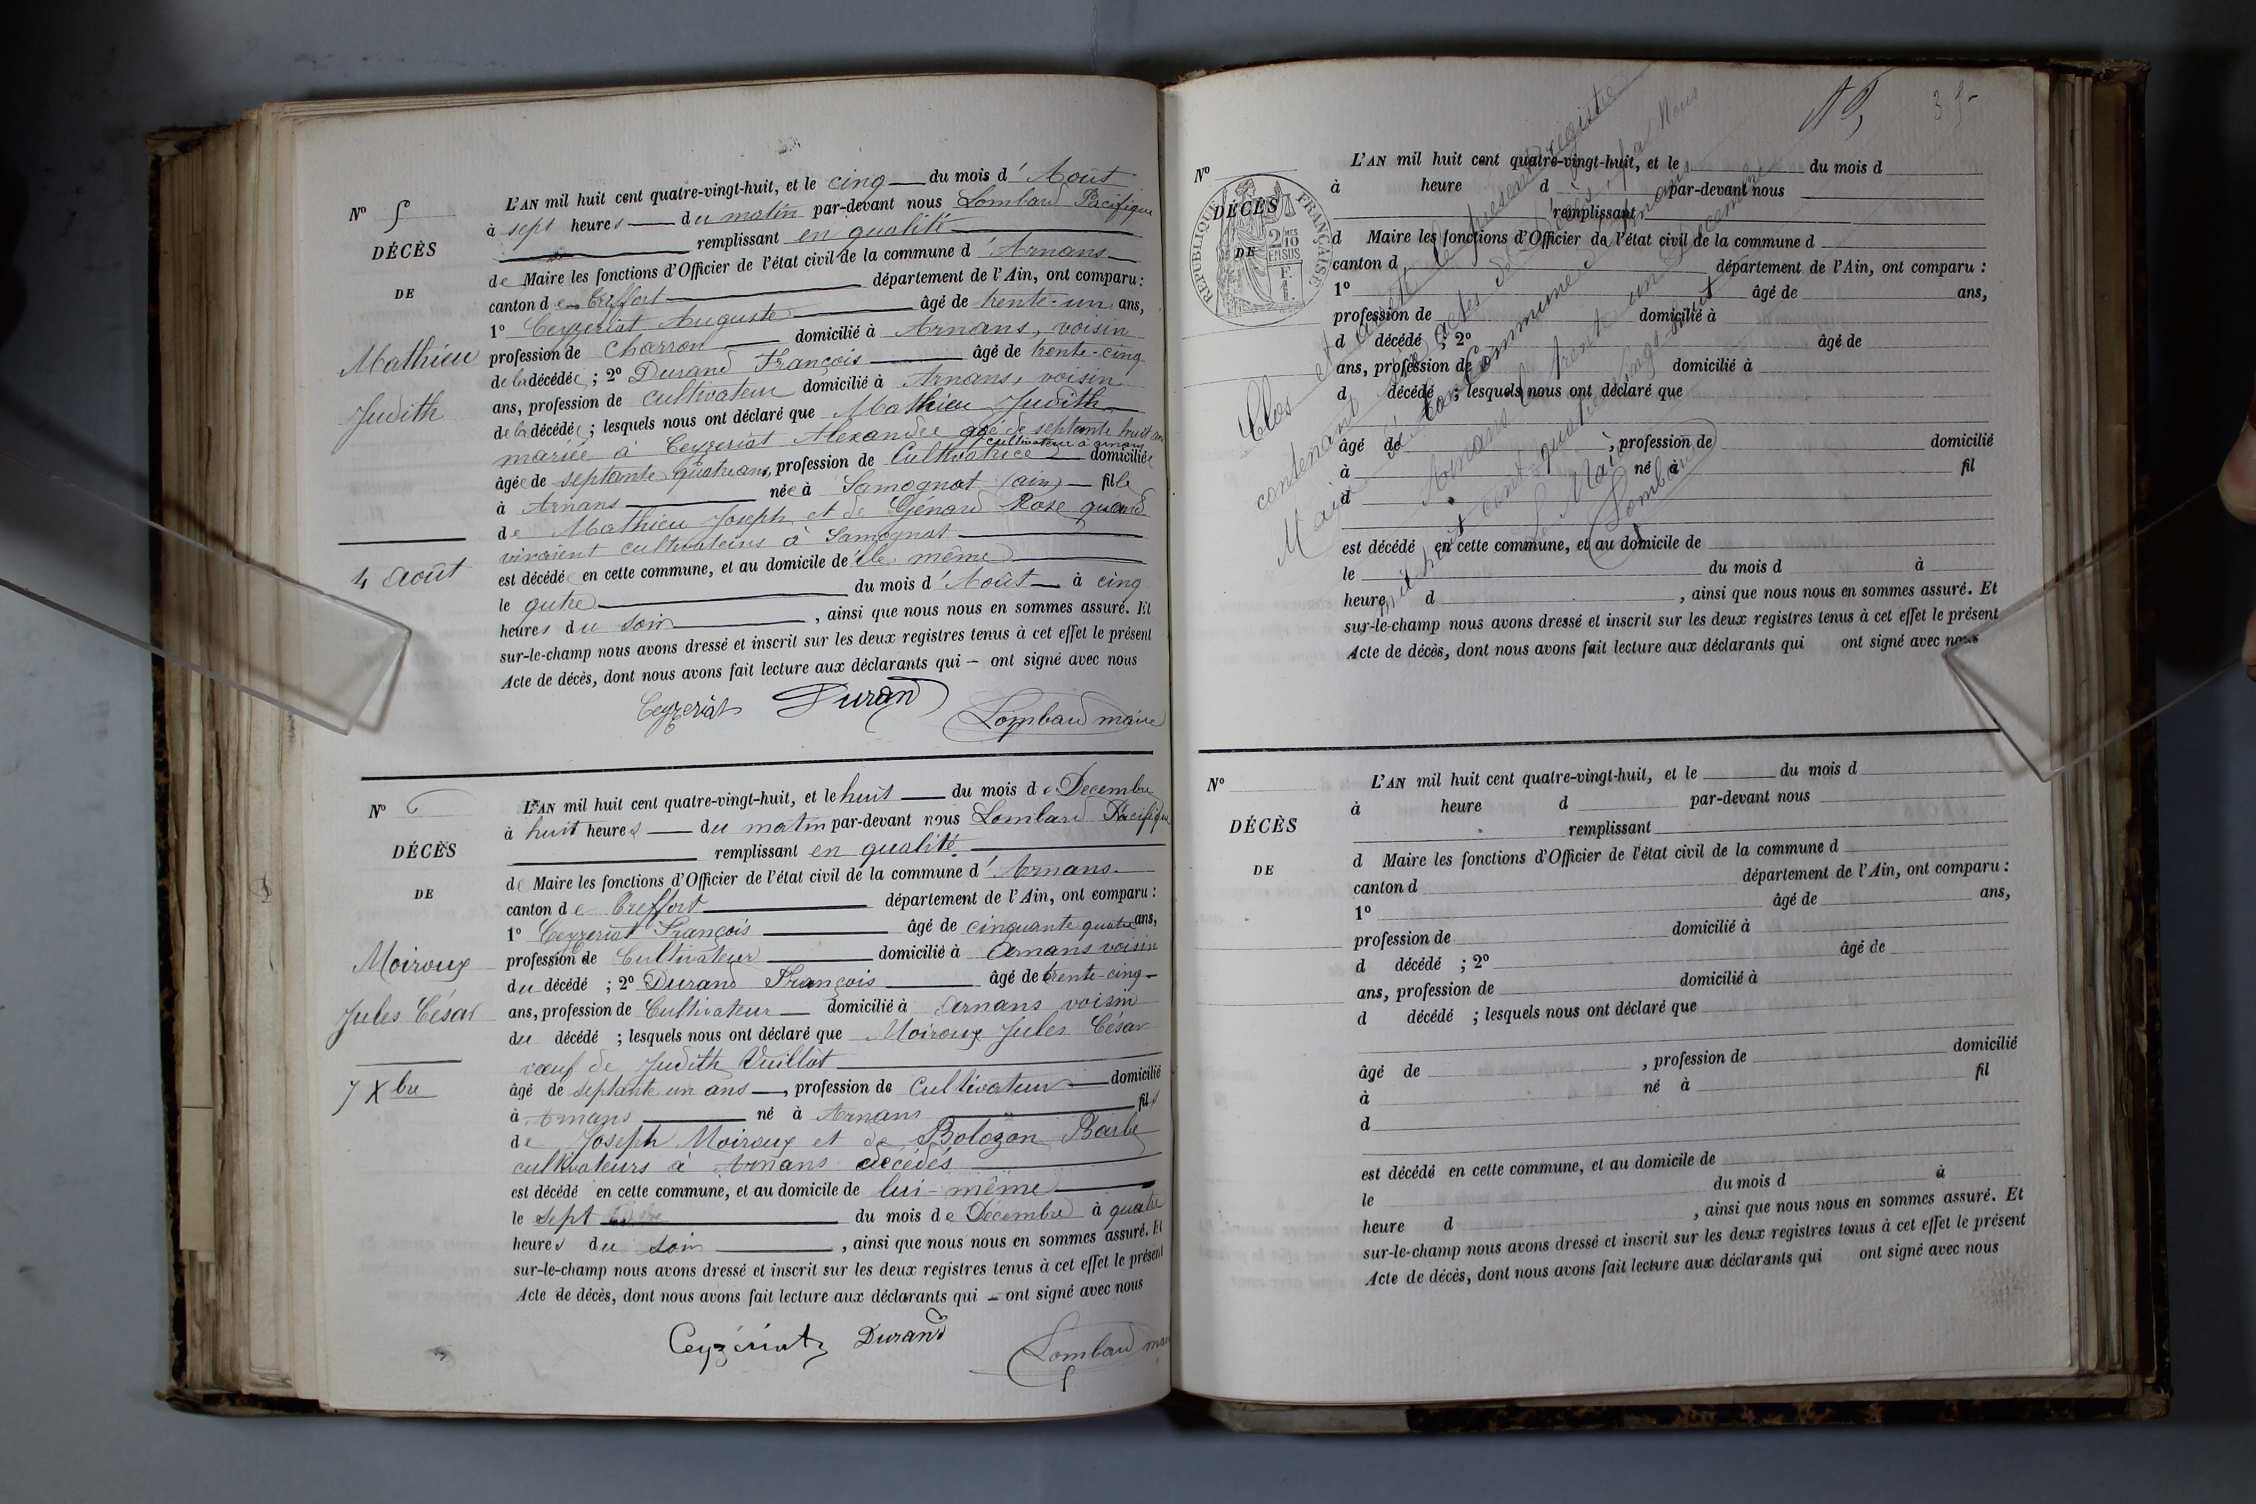 N° 5
DÉCÈS
DE
Mathieu
Judith
4 Août
L'AN mil huit cent quatre-vingt-huit, et le cinq du mois d'Août
à sept heures du matin par-devant nous Lombard Pacifique
remplissant en qualité
de Maire les fonctions d'Officier de l'état civil de la commune d'Arnans
canton de Treffort département de l'Ain, ont comparu :
1° Ceyzeriat Auguste âgé de trente-un ans,
profession de Charron domicilié à Arnans, voisin
de la décédée ; 2° Durand François âgé de trente-cinq
ans, profession de cultivateur domicilié à Arnans, voisin
de la décédée ; lesquels nous ont déclaré que Mathieu Judith
mariée à Ceyzeriat Alexandre agé de septante huit ans
cultivateur à arnans
âgée de septante quatre ans, profession de Cultivatrice domiciliée
à Arnans née à Samognat (ain) fille
de Mathieu Joseph et de Génard Rose quand
vivaient cultivateurs à Samognat
est décédée en cette commune, et au domicile de elle même
le qutre du mois d'Août à cinq
heures du soir , ainsi que nous nous en sommes assuré. Et
sur-le-champ nous avons dressé et inscrit sur les deux registres tenus à cet effet le présent
Acte de décès, dont nous avons fait lecture aux déclarants qui – ont signé avec nous
Ceyzeriat Durand
Lombard maire
N° 6
DÉCÈS
DE
Moiroux
Jules César
7 Xbre
L'AN mil huit cent quatre-vingt-huit, et le huit du mois de Decembre
à huit heures du matin par-devant nous Lombard Pacifique
remplissant en qualité
de Maire les fonctions d'Officier de l'état civil de la commune d'Arnans
canton de Treffort département de l'Ain, ont comparu :
1° Ceyzeriat François âgé de cinquante quatre ans,
profession de Cultivateur domicilié à Arnans voisin
du décédé ; 2° Durand François âgé de trente-cinq
ans, profession de Cultivateur domicilié à Arnans voisin
du décédé ; lesquels nous ont déclaré que Moiroux Jules César
vœuf de Judith Vuillat
âgé de septante un ans , profession de Cultivateur domicilié
à Arnans né à Arnans fils
de Joseph Moiroux et de Bolozon Barbe
cultivateurs à Arnans décédés
est décédé en cette commune, et au domicile de lui-même
le sept du mois de Décembre à quatre
heures du soir , ainsi que nous nous en sommes assuré. Et
sur-le-champ nous avons dressé et inscrit sur les deux registres tenus à cet effet le présent
Acte de décès, dont nous avons fait lecture aux déclarants qui – ont signé avec nous
Ceyzériat Durand
Lombard maire
N°
DÉCÈS
DE
RÉPUBLIQUE FRANÇAISE
2/10 EN SUS
L'AN mil huit cent quatre-vingt-huit, et le du mois d
à heure d par-devant nous
remplissant
d Maire les fonctions d'Officier de l'état civil de la commune d
canton d département de l'Ain, ont comparu :
1° âgé de ans,
profession de domicilié à
d décédé ; 2° âgé de
ans, profession de domicilié à
d décédé ; lesquels nous ont déclaré que
âgé de , profession de domicilié
à né à fil
d
est décédé en cette commune, et au domicile de
le du mois d à
heure d , ainsi que nous nous en sommes assuré. Et
sur-le-champ nous avons dressé et inscrit sur les deux registres tenus à cet effet le présent
Acte de décès, dont nous avons fait lecture aux déclarants qui ont signé avec nous
Clos et arrêté le présent registre
contenant les actes de décès par Nous
Maire de la Commune d'Arnans
Arnans le trente un décembre
mil huit cent quatre vingt huit
Le Maire
Lombard
N°
DÉCÈS
DE
L'AN mil huit cent quatre-vingt-huit, et le du mois d
à heure d par-devant nous
remplissant
d Maire les fonctions d'Officier de l'état civil de la commune d
canton d département de l'Ain, ont comparu :
1° âgé de ans,
profession de domicilié à
d décédé ; 2° âgé de
ans, profession de domicilié à
d décédé ; lesquels nous ont déclaré que
âgé de , profession de domicilié
à né à fil
d
est décédé en cette commune, et au domicile de
le du mois d à
heure d , ainsi que nous nous en sommes assuré. Et
sur-le-champ nous avons dressé et inscrit sur les deux registres tenus à cet effet le présent
Acte de décès, dont nous avons fait lecture aux déclarants qui ont signé avec nous